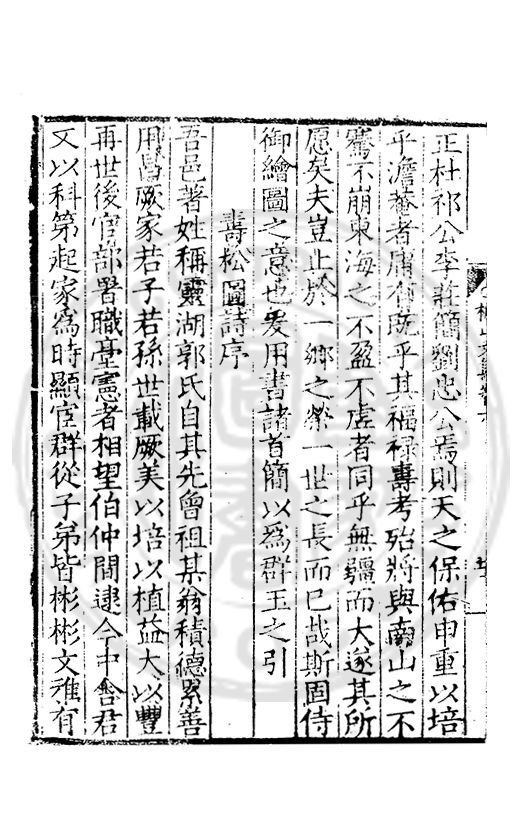 正杜祁公李莊簡劉忠公焉則天之保佑申重以培
乎澹菴者庸有既乎其福祿壽考殆將與南山之不
騫不崩東海之不盈不虗者同乎無疆而大遂其所
愿矣夫豈止於一鄉之榮一世之長而已哉斯固侍
御繪圖之意也爰用書諸首簡以為群玉之引
壽松圖詩序
吾邑著姓稱靈湖郭氏自其先曾祖某翁積德累善
用昌厥家若子若孫世載厥美以培以植益大以豐
再世後官部署職臺憲者相望伯仲間逮今中舍君
又以科第起家為時顯宦群從子弟皆彬彬文雅有